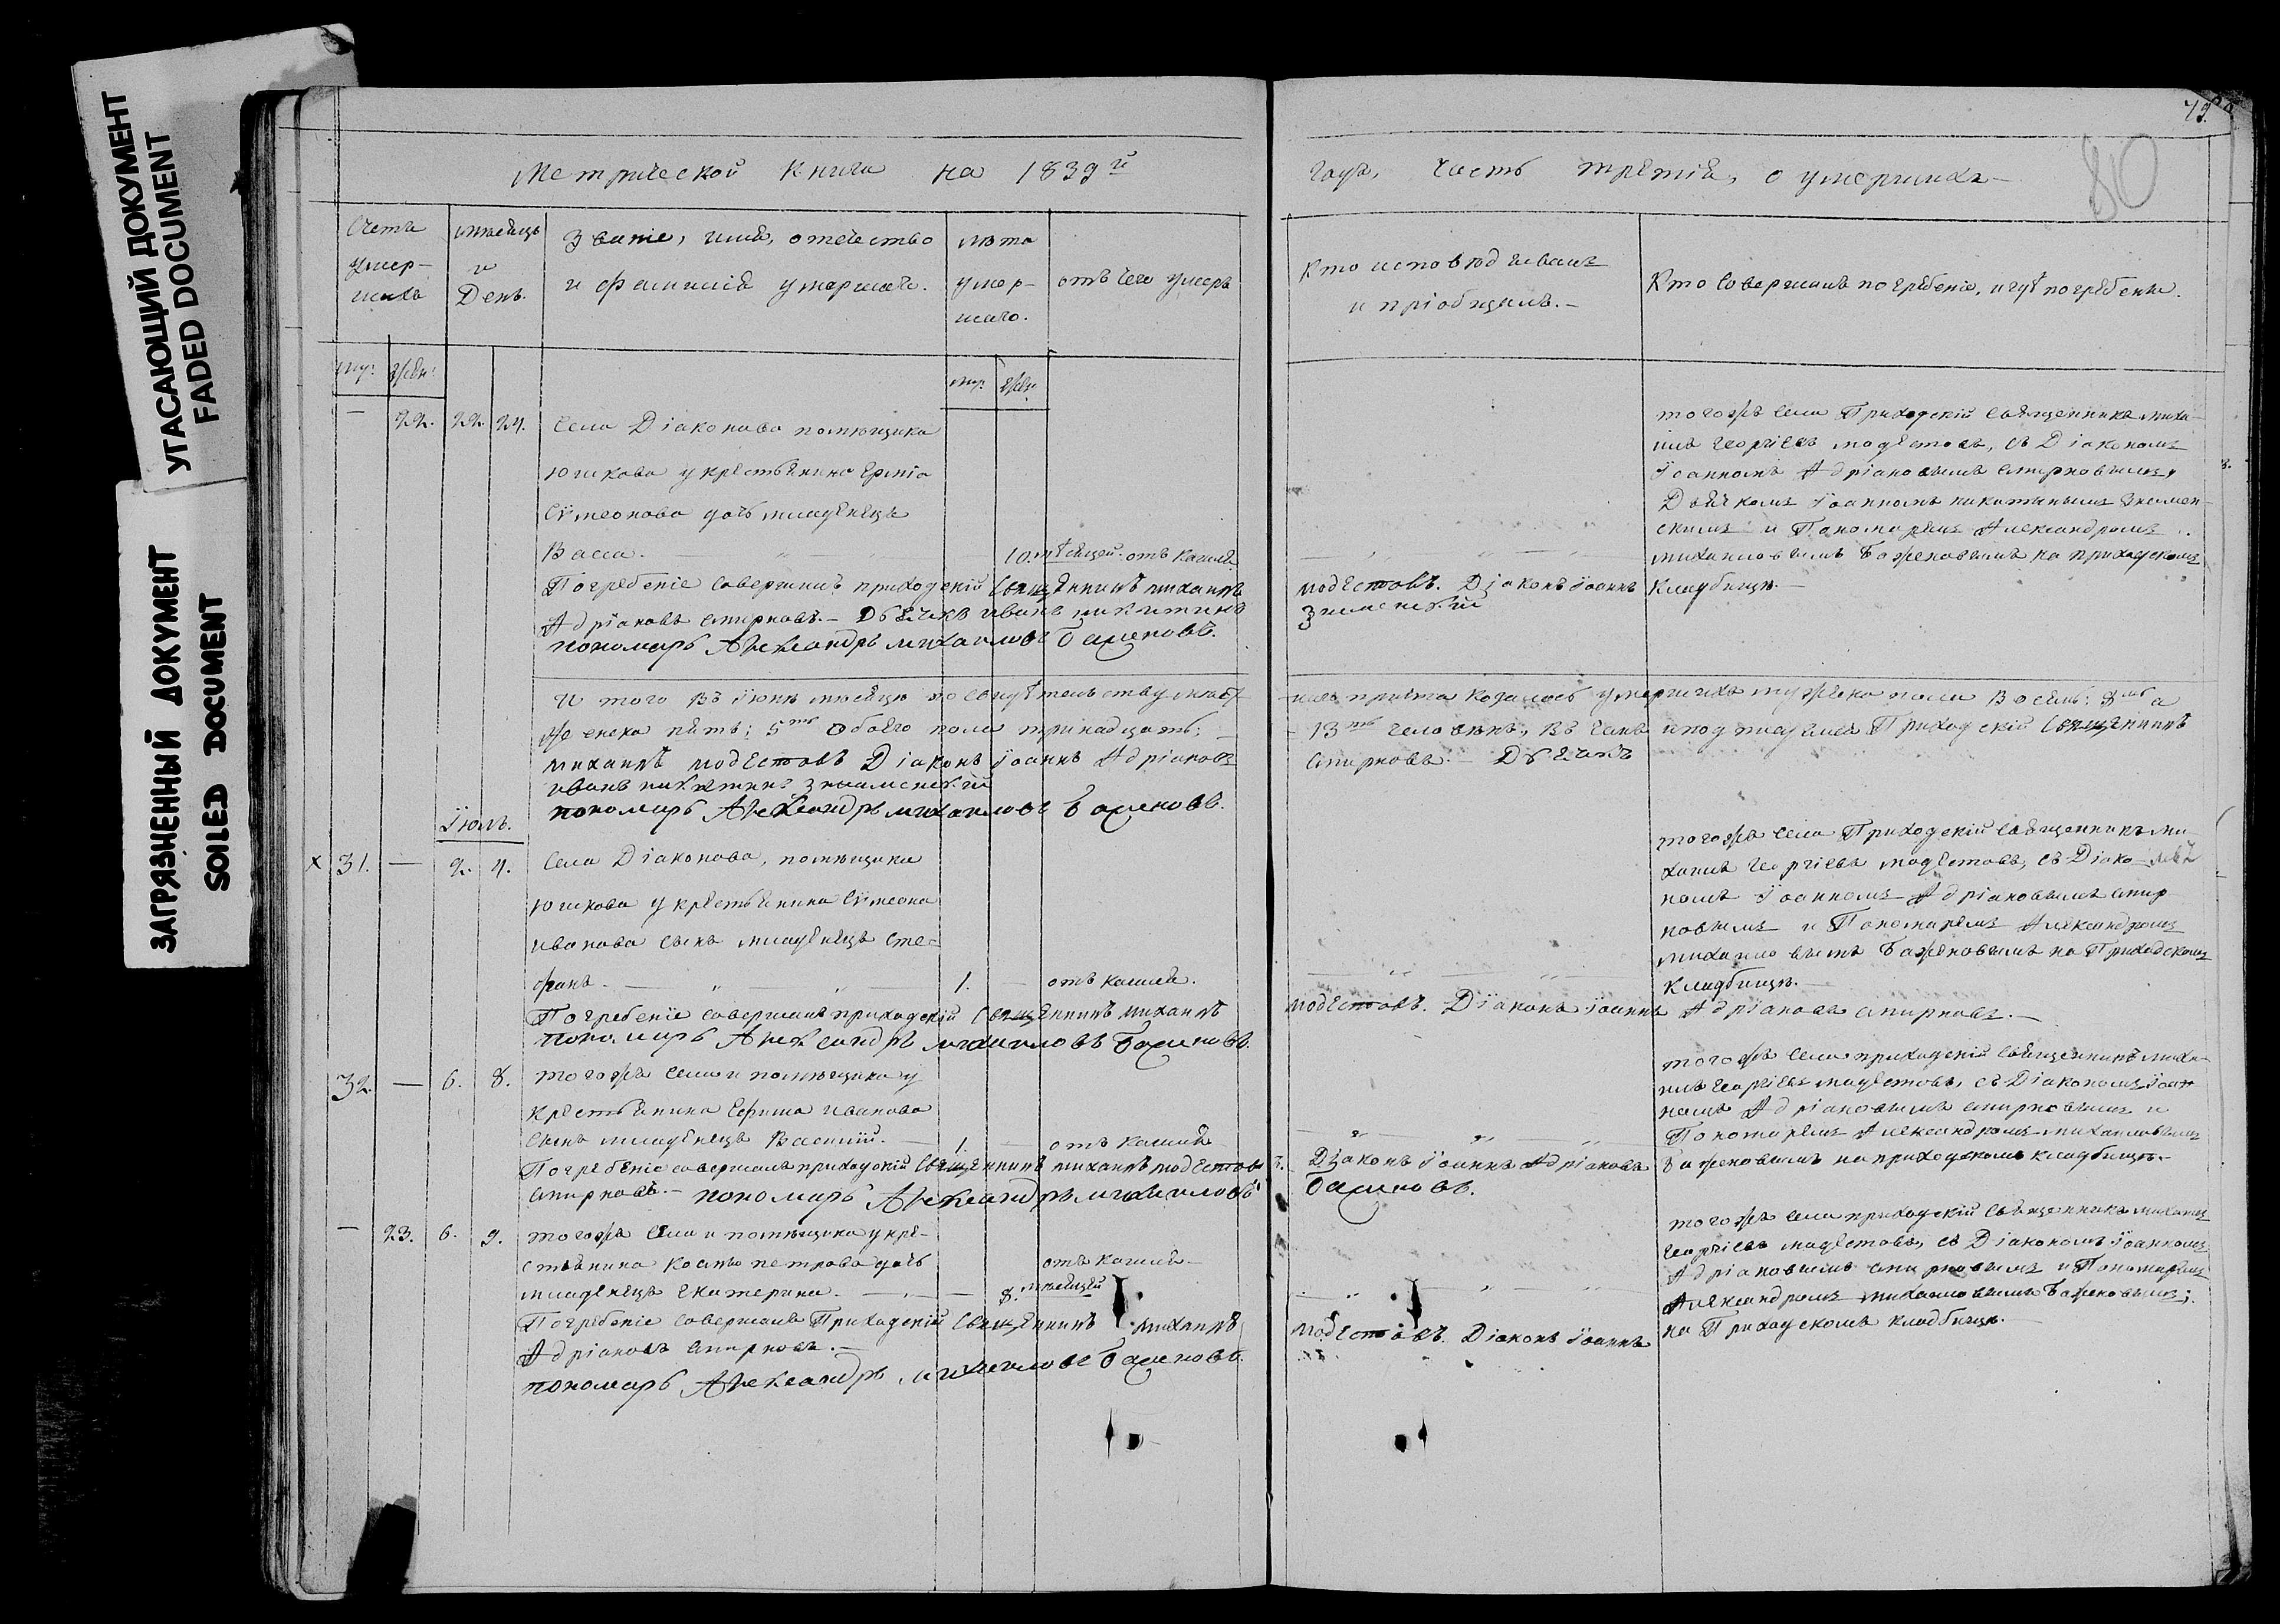 УГАСАЮЩИЙ ДОКУМЕНТ
FADED DOCUMENT
ЗАГРЯЗНЕННЫЙ ДОКУМЕНТ
SOILED DOCUMENT
Метрической Книги на 1839й
года, Часть третія, о умершихъ
79
80
Счетъ умер-шихъ
мѣсяцъ и День.
Званіе, имя, отечество
и фамилія умершаго.
лѣта умер-шаго.
отъ чего умеръ
Кто исповѣдывалъ
и пріобщилъ.
Кто совершалъ погребеніе, и гдѣ погребены.
муж. жен.
муж. жен.
— 22. 22. 24. Села Діаконова помѣщика
Юшкова у крестьянина
Сѵмеонова дочь младенецъ
Васса. 10. мѣсяцей. отъ кашля
тогоже села Приходскій священникъ Миха-
илъ Георгіевъ Модестовъ, съ Діакономъ
Іоанномъ Адріановымъ Смирновымъ,
Дьячкомъ Іоанномъ Никитинымъ Знамен-
скимъ и Пономаремъ Александромъ
Михаиловымъ Баженовымъ на приходскомъ
Кладбищѣ.
Погребеніе совершилъ приходскій Священникъ Михаилъ Модестовъ. Діаконъ Іоаннъ
Адріановъ Смирновъ. Дьячекъ Иванъ Никитинъ Знаменскій
пономарь Александръ Михаиловъ Баженовъ.
И того въ Іюнѣ мѣсяцѣ по причта умершихъ мужеска пола восемь: 8мь а
женска пять; 5ть обоего пола тринадцать; 13ть человѣкъ, въ чемъ и подписуемся Приходскій Священникъ
Михаилъ Модестовъ Діаконъ Іоаннъ Адріановъ Смирновъ. Дьячекъ
Иванъ Никитинъ Знаменскій
пономарь Александръ Михаиловъ Баженовъ.
Іюль.
х 31. — 2. 4. Села Діаконова, помѣщика
Юшкова у крестьянина Сѵмеона
Иванова сынъ младенецъ Сте-
фанъ. 1. — отъ кашля.
тогоже села Приходскій священникъ Ми-
хаилъ Георгіевъ Модестовъ, съ Діако-
номъ Іоанномъ Адріановымъ Смир
новымъ и Пономаремъ Александромъ
Михаиловымъ Баженовымъ на Приходскомъ
Кладбищѣ.
Погребеніе совершалъ приходскій Священникъ Михаилъ Модестовъ. Діаконъ Іоаннъ Адріановъ Смирновъ.
пономарь Александръ Михаиловъ Баженовъ.
32. — 6. 8. тогоже села и помѣщика у
крестьянина Ефима Иванова
сынъ младенецъ Василій. 1. — отъ кашля
тогоже села приходскій священникъ Миха-
илъ Георгіевъ Модестовъ, съ Діакономъ Іоан
номъ Адріановымъ Смирновымъ и
Пономаремъ Александромъ Михаиловымъ
Баженовымъ на приходскомъ кладбищѣ.
Погребеніе совершалъ приходскій Священникъ Михаилъ Модестовъ. Діаконъ Іоаннъ Адріановъ
Смирновъ. пономарь Александръ Михаиловъ Баженовъ.
— 23. 6. 9. тогоже села и помѣщика у кре-
стьянина Козмы Петрова дочь
младенецъ Екатерина. 8. мѣсяцей отъ кашля
тогоже села приходскій священникъ Михаилъ
Георгіевъ Модестовъ, съ Діакономъ Іоанномъ
Адріановымъ Смирновымъ и Пономаремъ
Александромъ Михаиловымъ Баженовымъ;
на Приходскомъ кладбищѣ.
Погребеніе совершалъ Приходскій Священникъ Михаилъ Модестовъ. Діаконъ Іоаннъ
Адріановъ Смирновъ.
пономарь Александръ Михаиловъ Баженовъ.